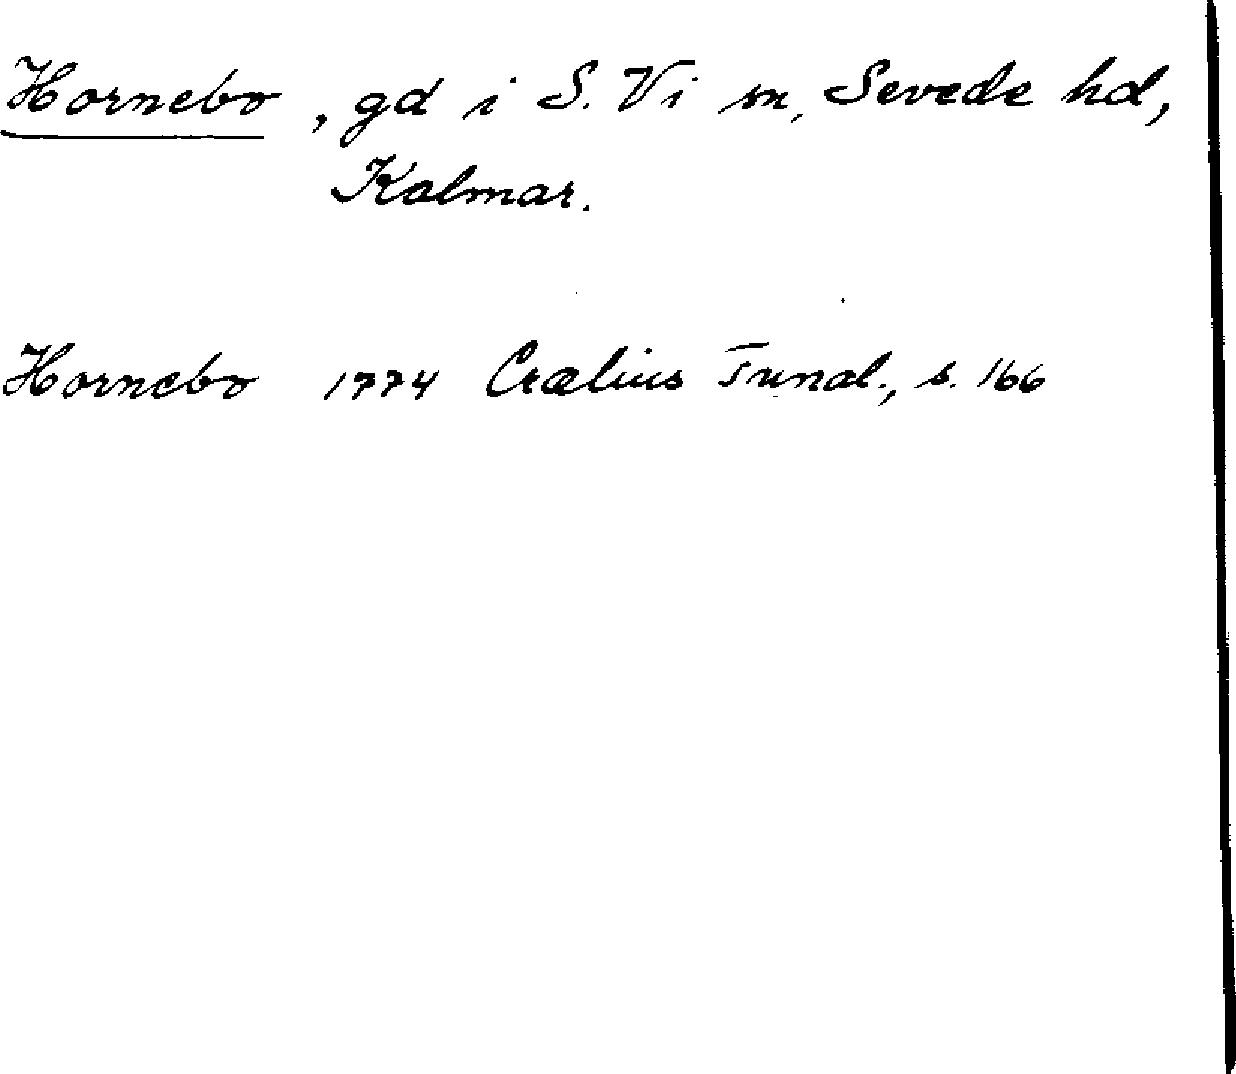 Hornebo, gd i S. Vi sn, Sevede hd,
Kalmar.
Hornebo 1774 Crælius Tunal., s. 166